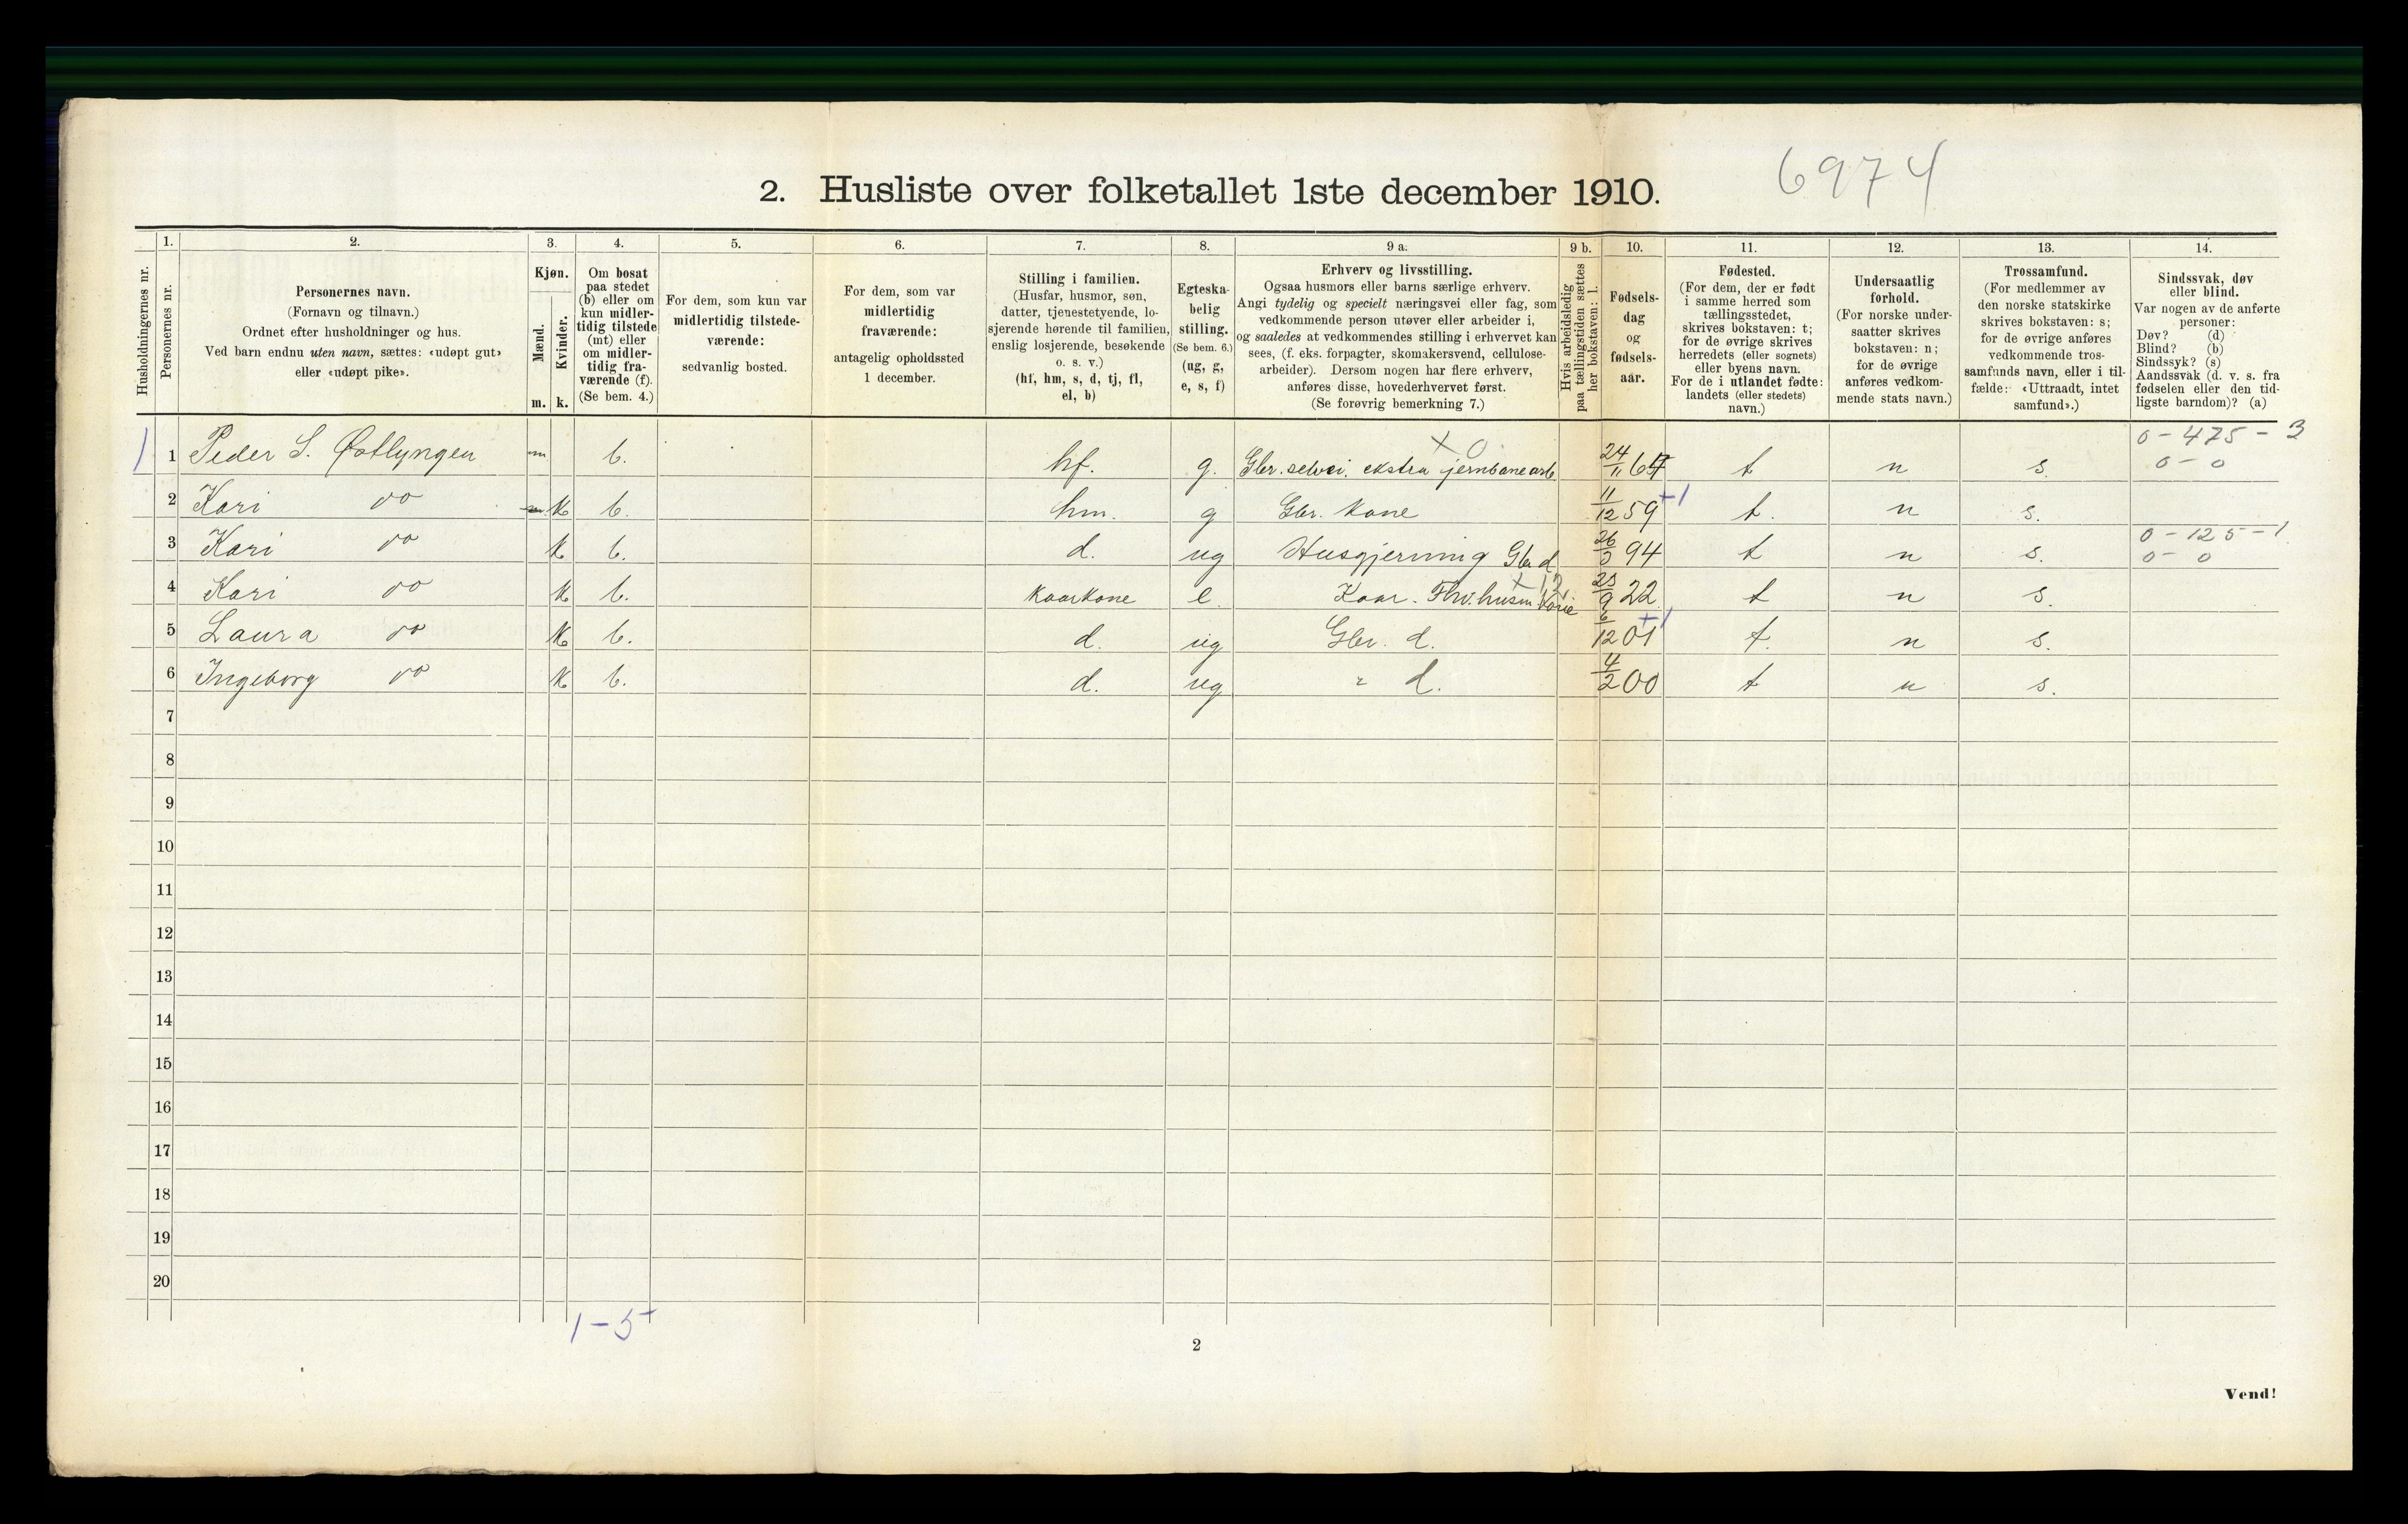 6974
2. Husliste over folketallet 1ste december 1910.
1. 2. 3. 4. 5. 6. 7. 8. 9 a. 9 b. 10. 11. 12. 13. 14.
Husholdningernes nr.
Personernes nr.
Personernes navn.
(Fornavn og tilnavn.)
Ordnet efter husholdninger og hus.
Ved barn endnu uten navn, sættes: «udøpt gut»
eller «udøpt pike».
Kjøn.
Mænd.
Kvinder.
m. k.
Om bosat
paa stedet
(b) eller om
kun midler-
tidig tilstede
(mt) eller
om midler-
tidig fra-
værende (f).
(Se bem. 4.)
For dem, som kun var
midlertidig tilstede-
værende:
sedvanlig bosted.
For dem, som var
midlertidig
fraværende:
antagelig opholdssted
1 december.
Stilling i familien.
(Husfar, husmor, søn,
datter, tjenestetyende, lo-
sjerende hørende til familien,
enslig losjerende, besøkende
o. s. v.)
(hf, hm, s, d, tj, fl,
el, b)
Egteska-
belig
stilling.
(Se bem. 6.)
(ug, g,
e, s, f)
Erhverv og livsstilling.
Ogsaa husmors eller barns særlige erhverv.
Angi tydelig og specielt næringsvei eller fag, som
vedkommende person utøver eller arbeider i,
og saaledes at vedkommendes stilling i erhvervet kan
sees, (f. eks. forpagter, skomakersvend, cellulose-
arbeider). Dersom nogen har flere erhverv,
anføres disse, hovederhvervet først.
(Se forøvrig bemerkning 7.)
Hvis arbeidsledig
paa tællingstiden sættes
her bokstaven: l.
Fødsels-
dag
og
fødsels-
aar.
Fødested.
(For dem, der er født
i samme herred som
tællingsstedet,
skrives bokstaven: t;
for de øvrige skrives
herredets (eller sognets)
eller byens navn.
For de i utlandet fødte:
landets (eller stedets)
navn.)
Undersaatlig
forhold.
(For norske under-
saatter skrives
bokstaven: n;
for de øvrige
anføres vedkom-
mende stats navn.)
Trossamfund.
(For medlemmer av
den norske statskirke
skrives bokstaven: s;
for de øvrige anføres
vedkommende tros-
samfunds navn, eller i til-
fælde: «Uttraadt, intet
samfund».)
Sindssvak, døv
eller blind.
Var nogen av de anførte
personer:
Døv? (d)
Blind? (b)
Sindssyk? (s)
Aandssvak (d. v. s. fra
fødselen eller den tid-
ligste barndom)? (a)
X 0 0 - 475 - 3
1 1 Peder S. Østlyngen m b. hf. g. Gbr. selvei. ekstra jernbanearb. 24/11 64 t n s. 0 - 0
2 Kari do k b. hm. g Gbr. kone 11/12 59 +1 t. n s.
0 - 125 - 1.
3 Kari do k b. d. ug Husgjerning Gbr d 94 t n s. 0 - 0
4 Kari do k b. Kaarkone e. Kaar. Fhv. husm kone 22 t n s.
5 Laura do k b. d. ug Gbr. d. 6/12 01 +1 t. n s.
6 Ingeborg do k b. d. ug " d. 4/2 00 t n s.
7
8
9
10
11
12
13
14
15
16
17
18
19
20
1 - 5
2
Vend!